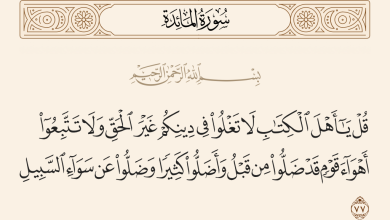 سُورَةُ المَائِدَةِ
بِسْمِ ٱللَّهِ ٱلرَّحْمَٰنِ ٱلرَّحِيمِ
قُلْ يَٰٓأَهْلَ ٱلْكِتَٰبِ لَا تَغْلُوا۟ فِى دِينِكُمْ غَيْرَ ٱلْحَقِّ وَلَا تَتَّبِعُوٓا۟
أَهْوَآءَ قَوْمٍ قَدْ ضَلُّوا۟ مِن قَبْلُ وَأَضَلُّوا۟ كَثِيرًا وَضَلُّوا۟ عَن سَوَآءِ ٱلسَّبِيلِ
٧٧